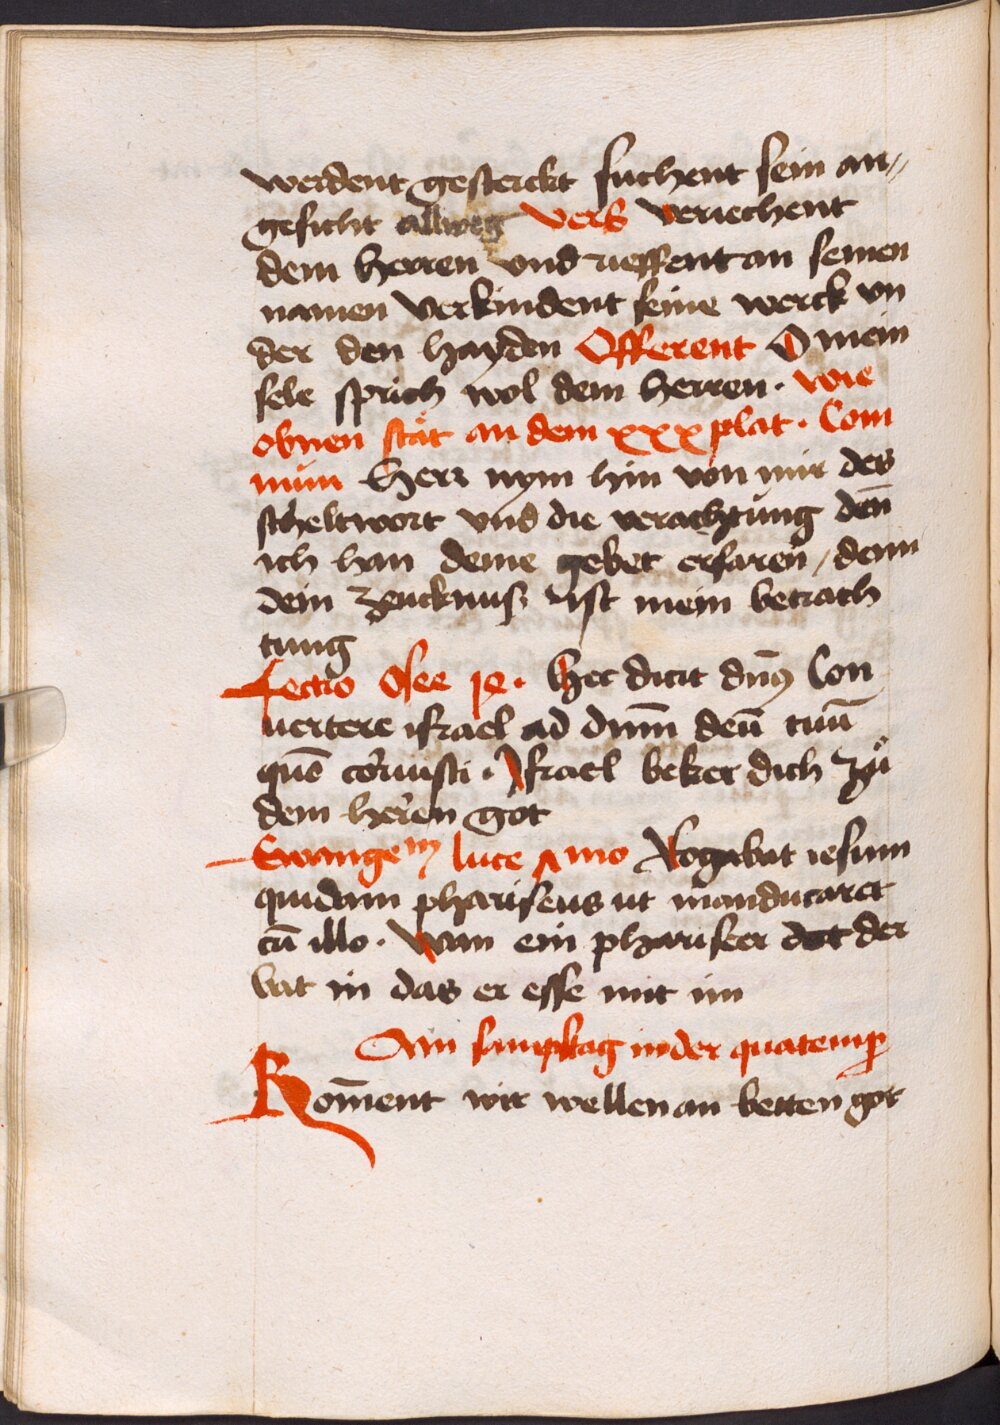 werdent gesterckt suchent sein an⸗
gesicht allweg Vers veriechent
dem herren vnd rieffent an seinen
namen verkindent seine werck vn
der den hayden Offerent O mein
sele sprich wol dem herren · wie
obnen stät an dem xxx plat · Com
mun Herr nym hin von mir des
scheltwort vnd die verachtung deñ
ich han deine gebet erfaren / denn
dein zeucknuß ist mein betrach
tung
Lectio Osee · Hec dicit dñs Con
uertere israel ad dnm̄ deū tuū
quē corruisti · Israel beker dich zuͦ
dem herren got
Ewangem luce mo Rogabat iesum
quidam phariseus ut manducaret
cū illo · Wan ein phariseer der
bat in das er esse mit im
Am sampstag in der quatemp
Kom̄ent wir wellen an betten got